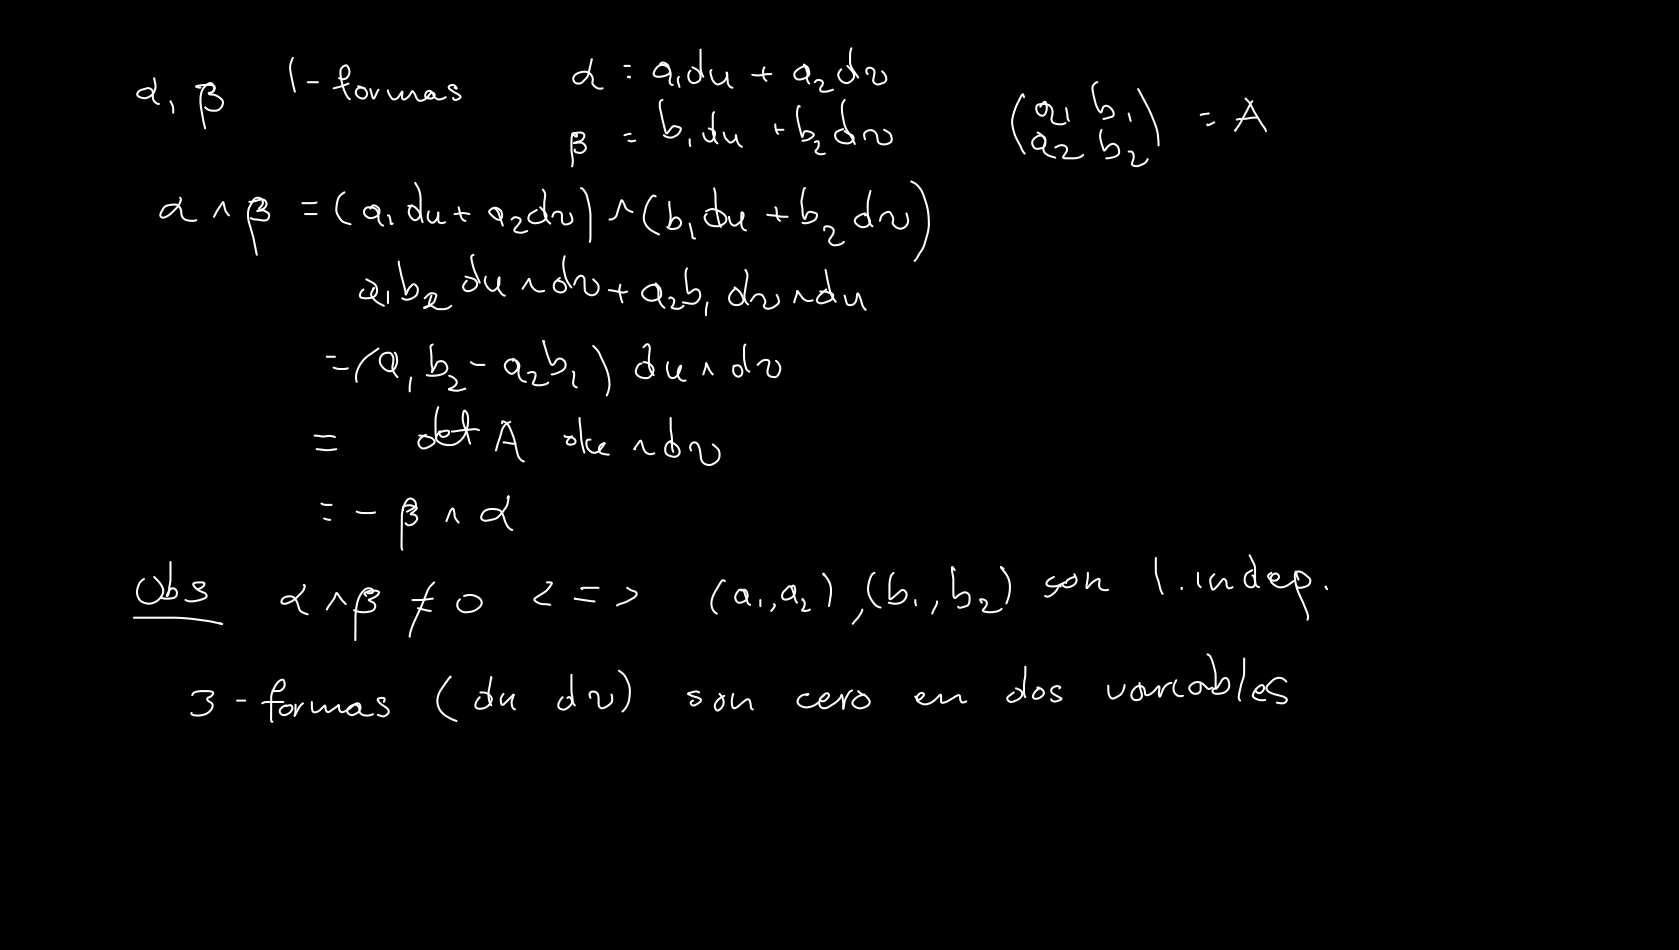 α, β 1-formas α = a₁du + a₂dv
β = b₁du + b₂dv
(a₁ b₁
a₂ b₂) = A
α ∧ β = (a₁du + a₂dv) ∧ (b₁du + b₂dv)
a₁b₂ du ∧ dv + a₂b₁ dv ∧ du
= (a₁b₂ - a₂b₁) du ∧ dv
= det A du ∧ dv
= - β ∧ α
Obs α ∧ β ≠ 0 <=> (a₁,a₂), (b₁,b₂) son l. indep.
3-formas (du dv) son cero en dos variables